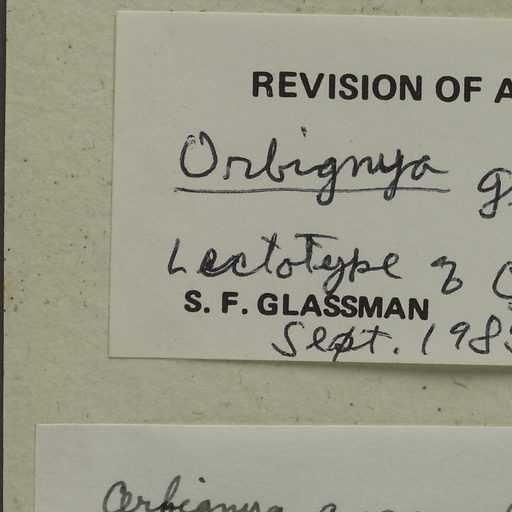 REVISION OF A
Orbignya g
Lectotype of
S. F. GLASSMAN
Sept. 198
Orbignya